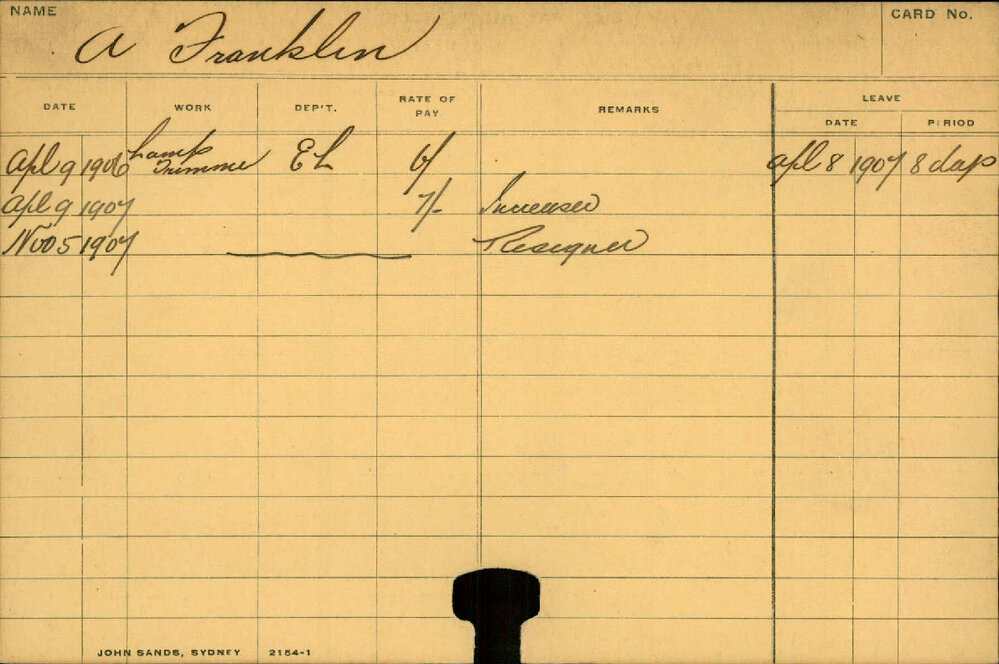 NAME
A Franklin
CARD No.
DATE WORK DEP'T. RATE OF PAY REMARKS LEAVE
DATE PERIOD
Apl 9 1906 Lamp Trimmer EL 6/ Apl 8 1907 8 days
Apl 9 1907 7/- Increased
Nov 5 1907 Resigned
JOHN SANDS, SYDNEY 2154-1